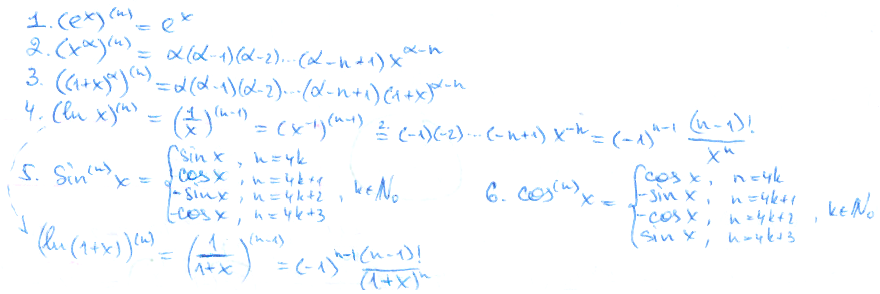 1. (e^x)^(n) = e^x
2. (x^α)^(n) = α(α-1)(α-2)...(α-n+1) x^(α-n)
3. ((1+x)^α)^(n) = α(α-1)(α-2)...(α-n+1)(1+x)^(α-n)
4. (ln x)^(n) = (1/x)^(n-1) = (x^-1)^(n-1) =^2. (-1)(-2)...(-n+1) x^-n = (-1)^(n-1) (n-1)!/x^n
5. Sin^(n) x = { sin x, n=4k
cos x, n=4k+1
-sin x, n=4k+2
-cos x, n=4k+3 , k∈N₀
6. cos^(n) x = { cos x, n=4k
-sin x, n=4k+1
-cos x, n=4k+2
sin x, n=4k+3 , k∈N₀
(ln(1+x))^(n) = (1/(1+x))^(n-1) = (-1)^(n-1) (n-1)!/(1+x)^n